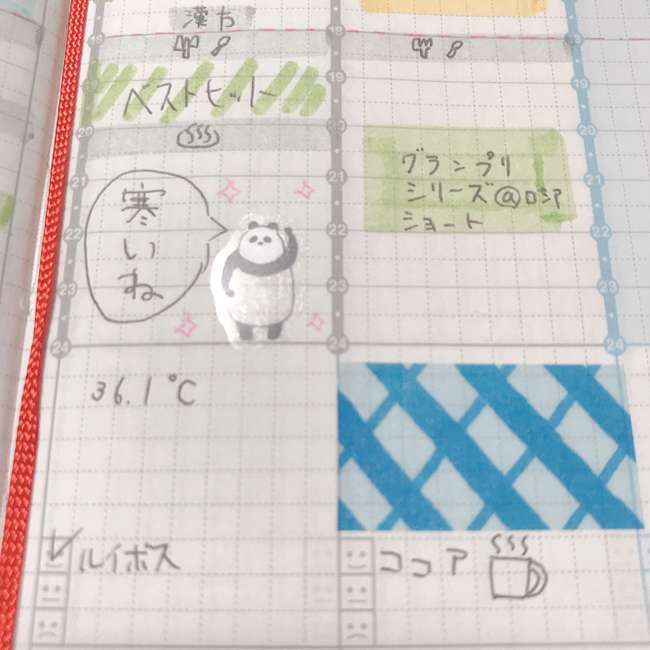 漢方
18
18
18
19
19
19
ベストヒットリー
20
20
21
21
21
グランプリ
シリーズ@ロシア
ショート
寒いね
22
22
22
23
23
23
24
24
24
36.1℃
ルイボス
ココア